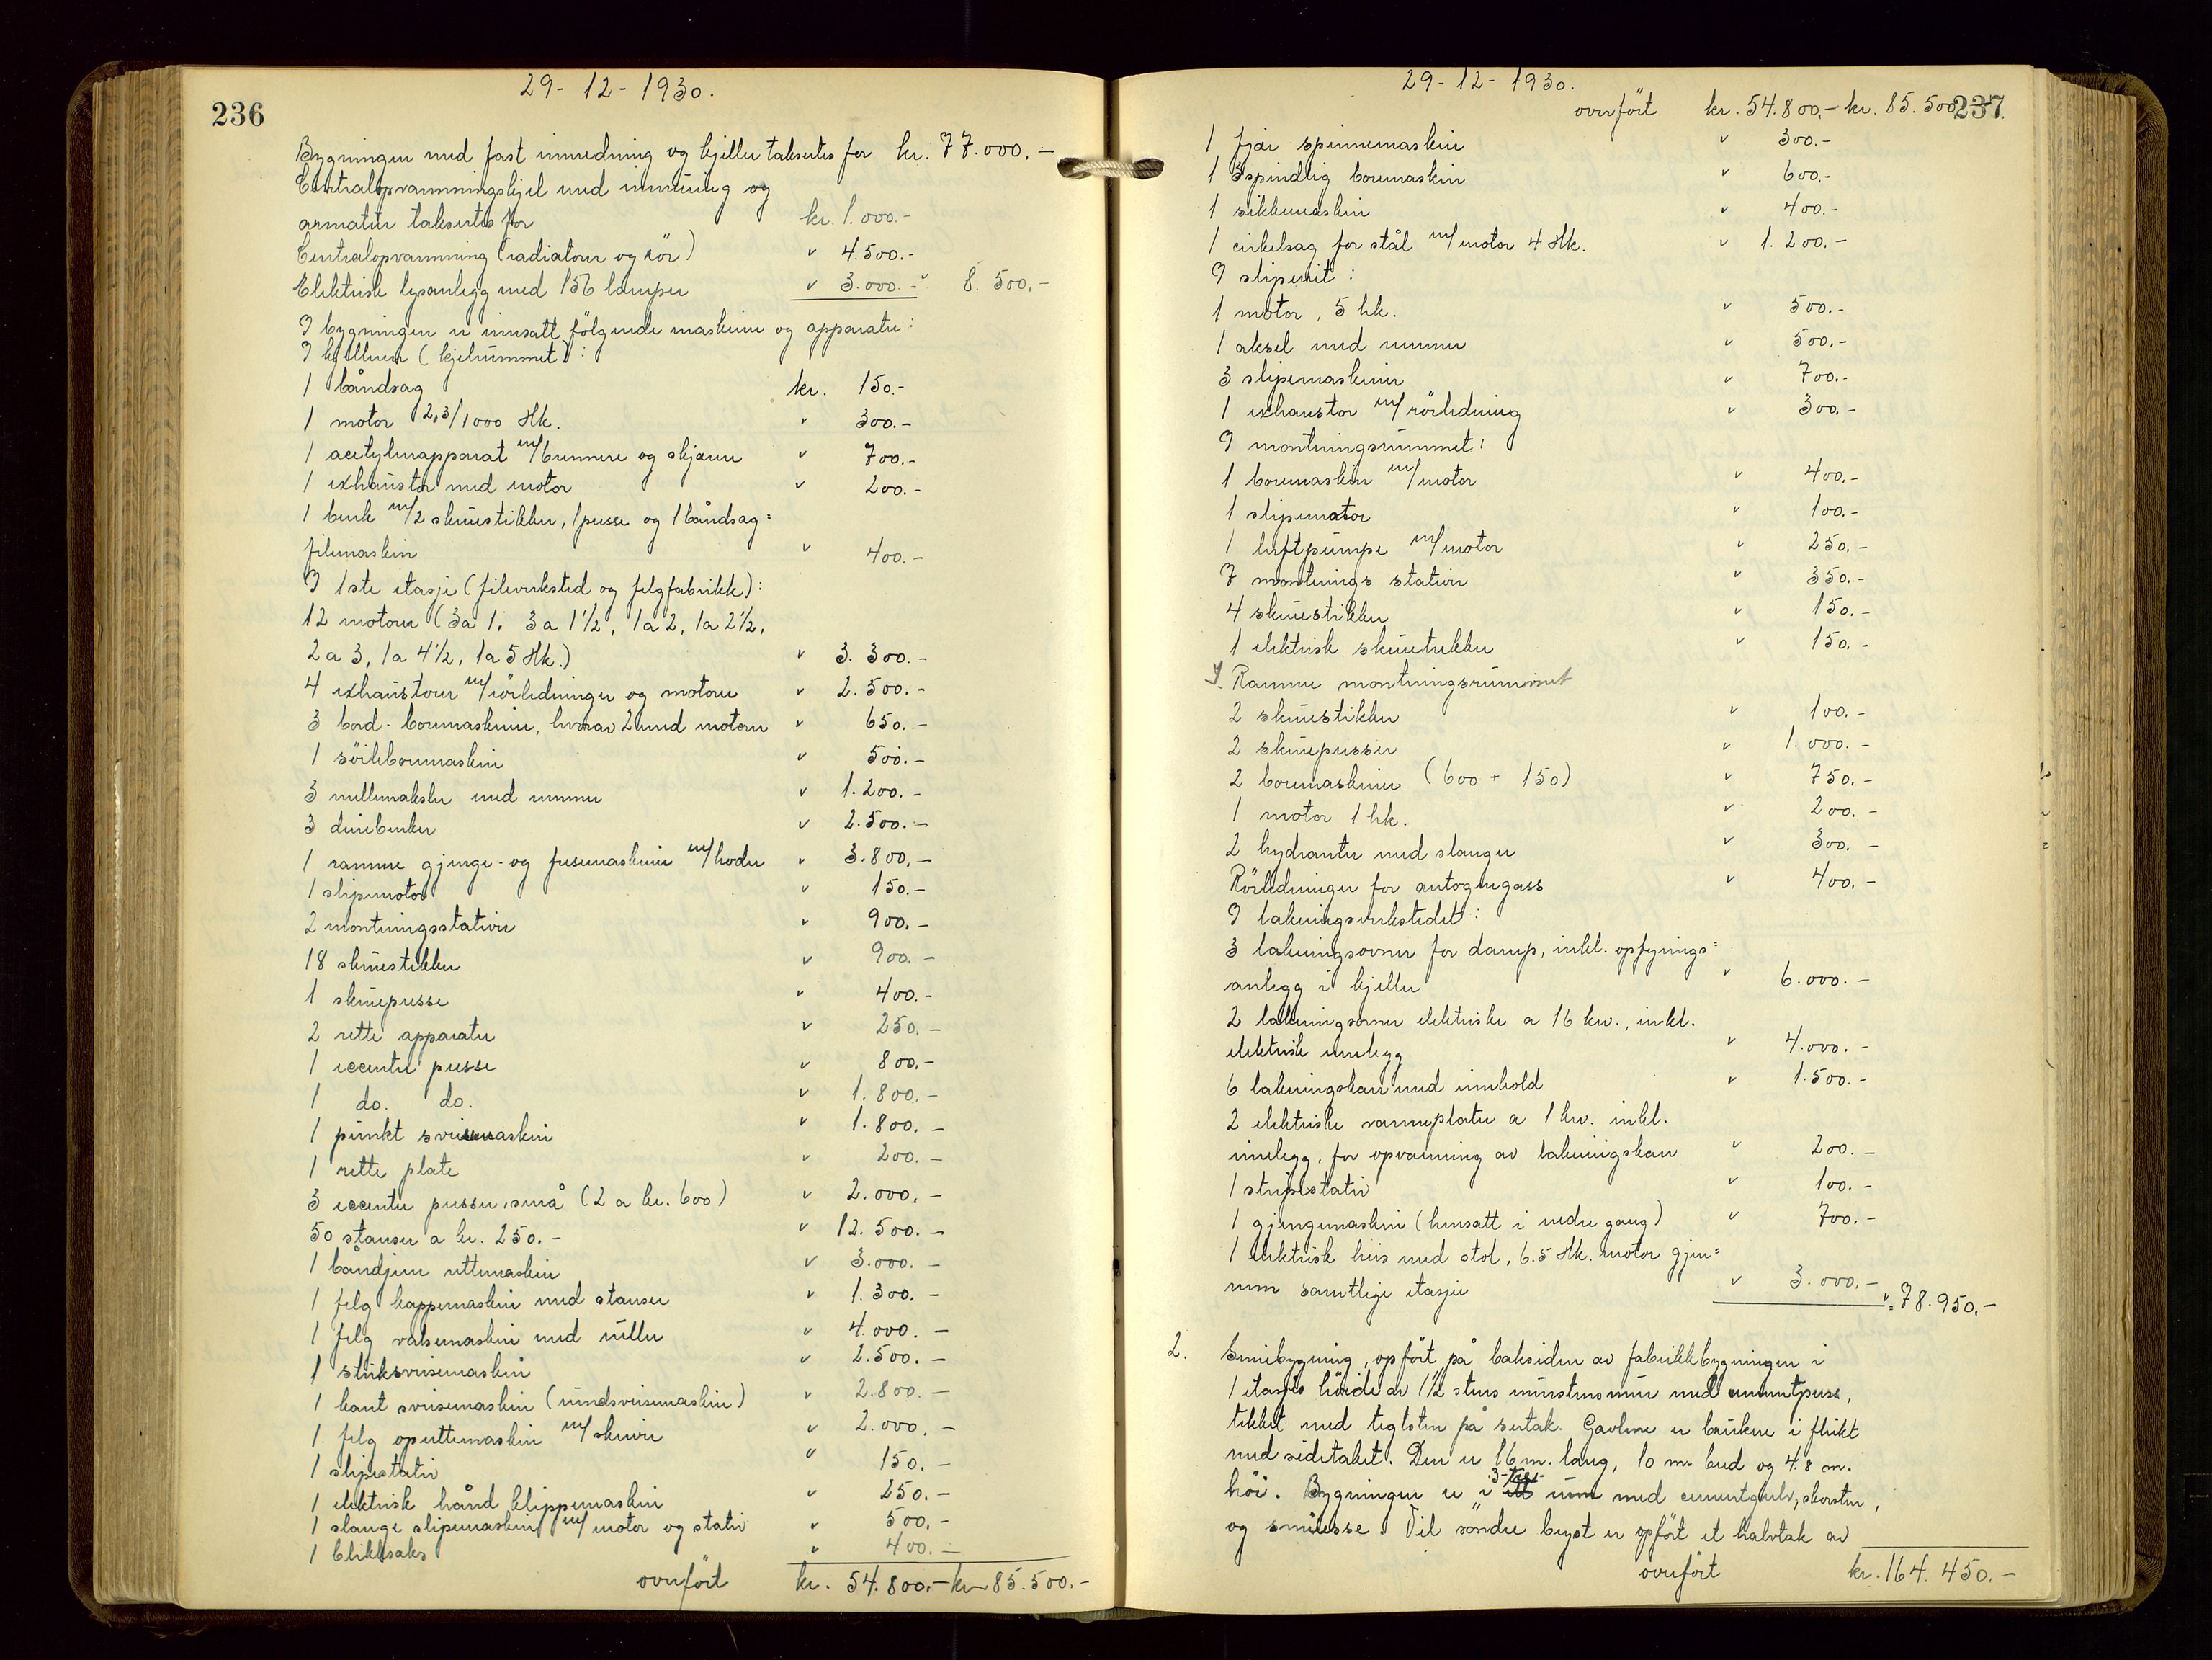 236
29-12-1930.
Bygningen med fast innredning og kjeller takseres for kr. 77.000.-
Centralopvarmningskjel med innmuring og
armatur takseres for kr. 1.000.-
Centralopvarmning (radiatorer og rör) " 4.500.-
Elektrisk lysanlegg med 156 lamper " 3.000.- " 8.500.-
I bygningen er innsatt følgende maskiner og apparater:
I kjelleren (kjelrummet):
1 båndsag kr. 150.-
1 motor 2,3/1000 Hk. " 300.-
1 acetylenapparat m/brennere og skjærer " 700.-
1 exhaustor med motor " 200.-
1 benk m/2 skruestikker, 1 presse og 1 båndsag=
filemaskin " 400.-
I 1ste etasje (fileverksted og felgfabrikk):
12 motorer (3 a 1. 3 a 1 1/2, 1 a 2, 1 a 2 1/2,
2 a 3, 1 a 4 1/2, 1 a 5 Hk.) " 3.300.-
4 exhaustorer m/rörledninger og motorer " 2.500.-
3 bord-boremaskiner, hvorav 2 med motorer " 650.-
1 söileboremaskin " 500.-
3 mellemaksler med remmer " 1.200.-
3 dreiebenker " 2.500.-
1 ramme gjenge- og fresemaskin m/hoder " 3.800.-
1 slipemotor " 150.-
2 monteringsstativer " 900.-
18 skruestikker " 900.-
1 skruepresse " 400.-
2 rette apparater " 250.-
1 eccenter presse " 800.-
1 do. do. " 1.800.-
1 punkt sveisemaskin " 1.800.-
1 rette plate " 200.-
3 eccenter presser, små (2 a kr. 600) " 2.000.-
50 stanser a kr. 250.- " 12.500.-
1 båndjern rettemaskin " 3.000.-
1 felg kappemaskin med stanser " 1.300.-
1 felg valsemaskin med ruller " 4.000.-
1 stuksveisemaskin " 2.500.-
1 kant sveisemaskin (rundsveisemaskin) " 2.800.-
1 felg oprettemaskin m/skiver " 2.000.-
1 slipestativ " 150.-
1 elektrisk hånd klippemaskin " 250.-
1 slange slipemaskin m/motor og stativ " 500.-
1 blikksaks " 400.-
overfört kr. 54.800.- kr. 85.500.-
237
29-12-1930.
overfört kr. 54.800.- kr. 85.500
1 fjær spinnemaskin " 300.-
1 3spindlig boremaskin " 600.-
1 sikkemaskin " 400.-
1 cirkelsag for stål m/motor 4 Hk. " 1.200.-
I sliperiet:
1 motor, 5 hk. " 500.-
1 aksel med remmer " 500.-
3 slipemaskiner " 700.-
1 exhaustor m/rörledning " 300.-
I monteringsrummet:
1 boremaskin m/motor " 400.-
1 slipemotor " 100.-
1 luftpumpe m/motor " 250.-
7 monterings stativer " 350.-
4 skruestikker " 150.-
1 elektrisk skruetrekker " 150.-
I. Ramme monteringsrummet
2 skruestikker " 100.-
2 skruepresser " 1.000.-
2 boremaskiner (600 + 150) " 750.-
1 motor 1 hk. " 200.-
2 hydranter med slanger " 300.-
Rörledninger for autogengass " 400.-
I lakeringsverkstedet:
3 lakeringsovner for damp, inkl. opfyrings=
anlegg i kjeller " 6.000.-
2 lakeringsovner elektriske a 16 kw., inkl.
elektrisk innlegg " 4.000.-
6 lakeringskar med innhold " 1.500.-
2 elektriske varmeplater a 1 kw. inkl.
innlegg, for opvarming av lakeringskar " 200.-
1 stripestativ " 100.-
1 gjengemaskin (hensatt i nedre gang) " 700.-
1 elektrisk heis med stol, 6.5 Hk. motor gjen=
nem samtlige etasjer " 3.000.- " 78.950.-
2. Smiebygning, opfört på baksiden av fabrikkbygningen i
1 etasjes höide av 1 1/2 stens murstensmur med cementpuss,
tekket med teglsten på sutak. Gavlene er brukne i flukt
med sidetaket. Den er 16 m. lang, 10 m. bred og 4.8 m.
höi. Bygningen er i 3-tre- ett rum med cementgulv, skorsten,
og smiesse. Til söndre bryst er opfört et halvtak av
overfört kr. 164.450.-